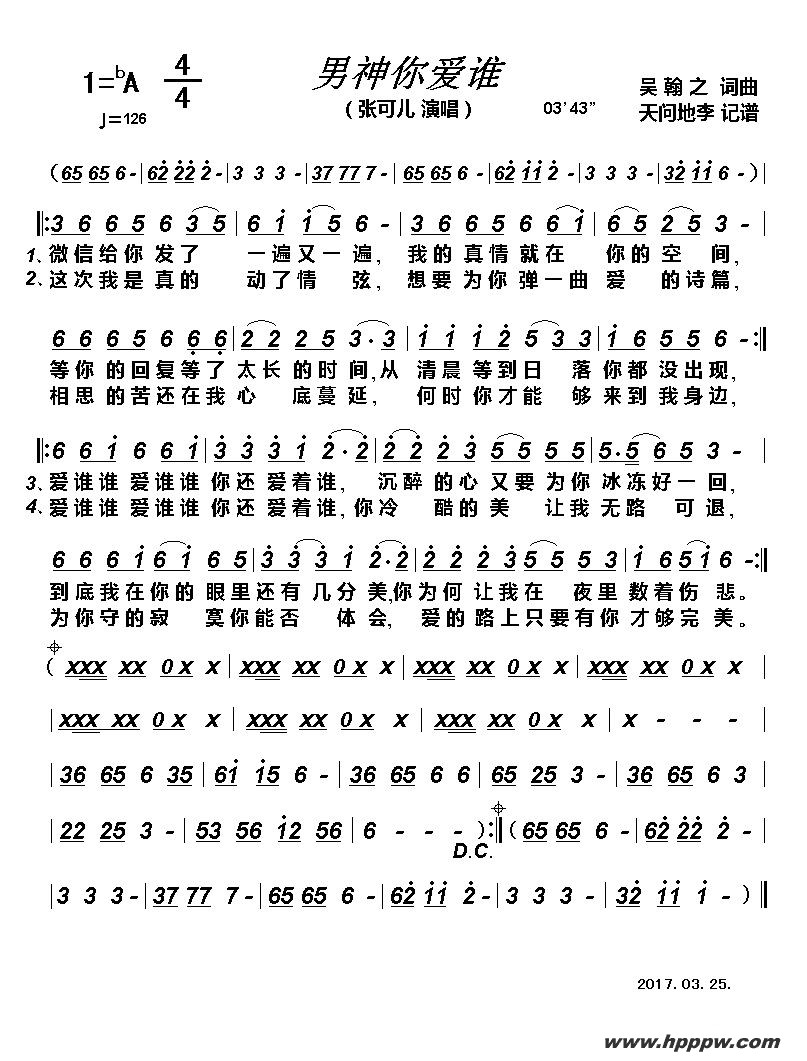 男神你爱谁
1=bA 4/4
♩=126
（张可儿 演唱）
03’43”
吴 翰 之 词曲
天问地李 记谱
（65 65 6 - |62 22 2 - |3 3 3 - |37 77 7 - |65 65 6 - |62 12 2 - |3 3 3 - |32 11 6 - ）|
‖:3 6 6 5 6 3 5 | 6 1 1 5 6 - | 3 6 6 5 6 6 1 | 6 5 2 5 3 - |
1、微信给你 发了 一遍又一遍, 我的真情就在 你的空 间,
2、这次我是 真的 动了情 弦, 想要为你弹一曲 爱 的诗篇,
6 6 6 5 6 6 6 | 2 2 2 5 3 · 3 | 1 1 1 2 5 3 3 | 1 6 5 5 6 - :‖
等你的回复等了 太长的时间,从 清晨等到日 落你都没出现,
相思的苦还在我心 底蔓延, 何时你才能 够来到我身边,
‖:6 6 1 6 6 1 | 3 3 3 1 2 · 2 | 2 2 2 3 5 5 5 | 5 · 5 6 5 3 - |
3、爱谁谁 爱谁谁 你还 爱着谁, 沉醉的心又要为你冰冻好一回,
4、爱谁谁 爱谁谁 你还 爱着谁, 你冷 酷的美 让我无路 可退,
6 6 6 1 6 1 6 5 | 3 3 3 1 2 · 2 | 2 2 2 3 5 5 5 3 | 5 5 5 1 6 - :‖
到底我在你的 眼里还有几分 美,你为何 让我在 夜里 数着伤 悲。
为你守的寂 寞你能否 体会, 爱的路上只要有你才够完美。
（xxx xx 0 x x | xxx xx 0 x x | xxx xx 0 x x | xxx xx 0 x x |
|xxx xx 0 x x | xxx xx 0 x x | xxx xx 0 x x |x - - - |
|36 65 6 35 |61 15 6 - |36 65 6 61 |65 25 3 - |36 65 6 3 |
|22 25 3 - |53 56 12 56 |6 - - - ）:‖（65 65 6 - |62 22 2 - |
D.C.
|3 3 3 - |37 77 7 - |65 65 6 - |62 11 2 - |3 3 3 - |32 11 1 - ）‖
2017. 03. 25.
www.hpppw.com